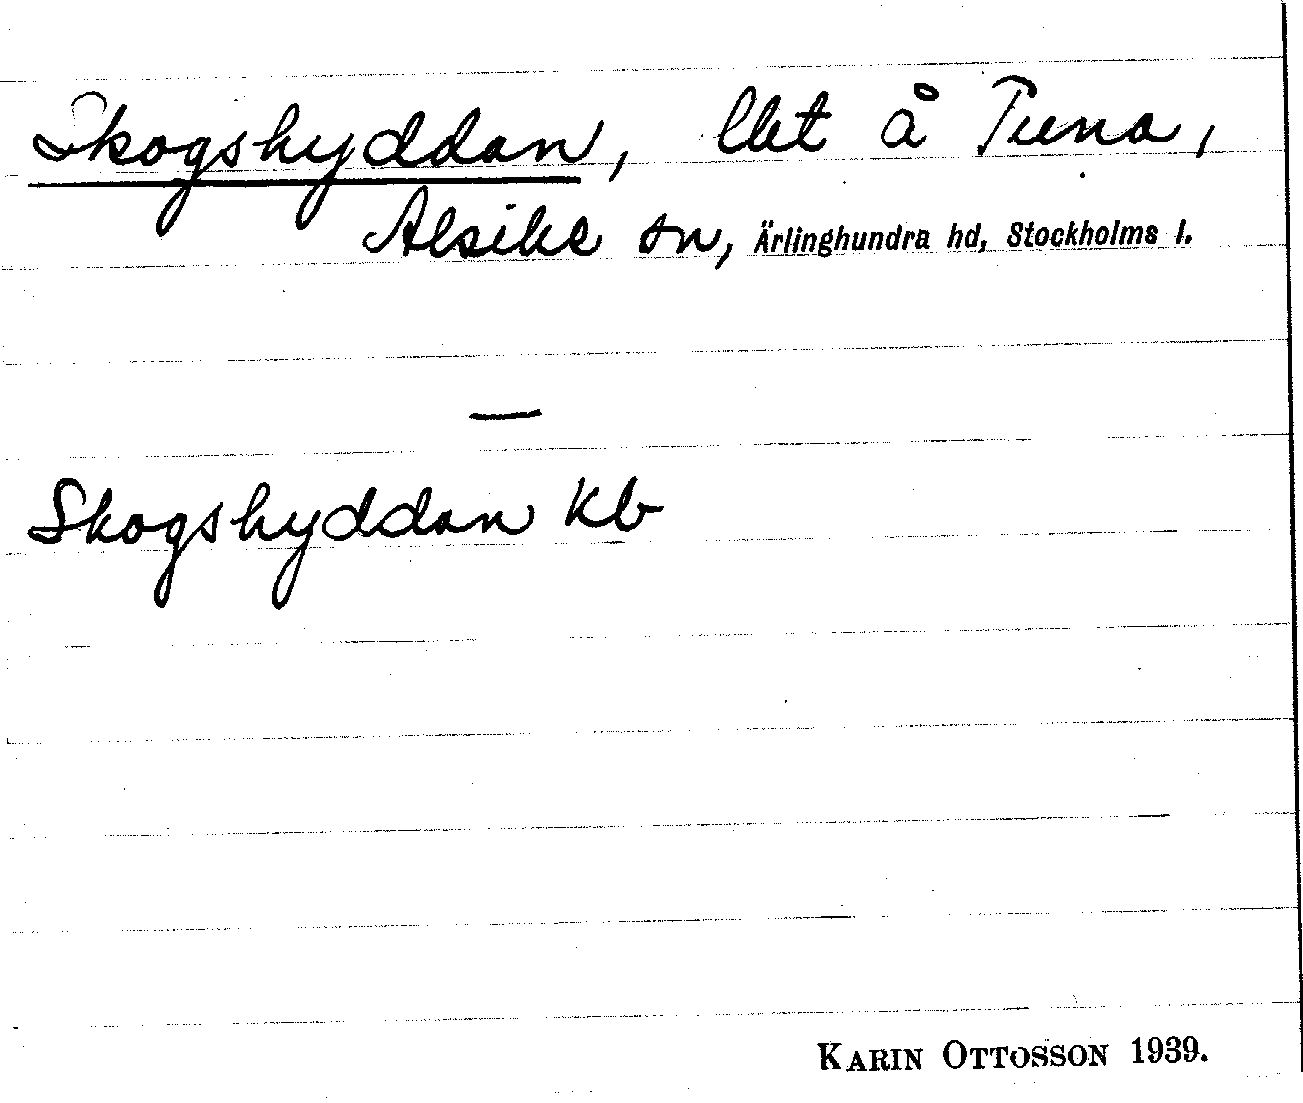 Skogshyddan, lht å Tuna,
Alsike sn, Ärlinghundra hd, Stockholms l.
—
Skogshyddan kb
KARIN OTTOSSON 1939.